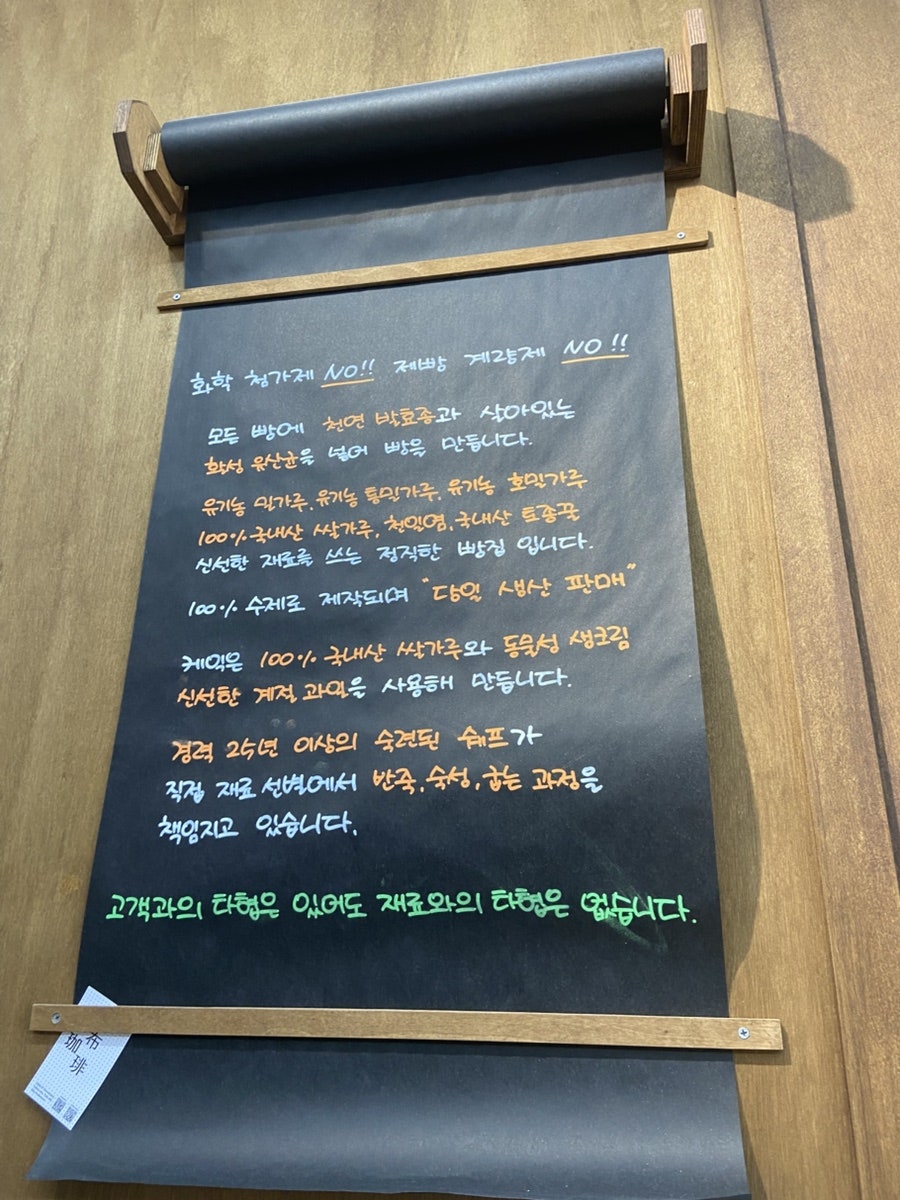 화학 첨가제 NO!! 제빵 계량제 NO!!
모든 빵에 천연 발효종과 살아있는
활성 유산균을 넣어 빵을 만듭니다.
유기농 밀가루, 유기농 통밀가루, 유기농 호밀가루
100% 국내산 쌀가루, 천일염, 국내산 토종꿀
신선한 재료를 쓰는 정직한 빵집 입니다.
100% 수제로 제작되며 "당일 생산 판매"
케익은 100% 국내산 쌀가루와 동물성 생크림
신선한 계절 과일을 사용해 만듭니다.
경력 25년 이상의 숙련된 쉐프가
직접 재료 선별에서 반죽, 숙성, 굽는 과정을
책임지고 있습니다.
고객과의 타협은 있어도 재료와의 타협은 없습니다.
布
珈琲